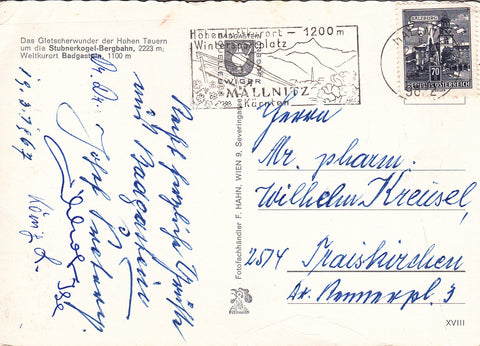 Das Gletscherwunder der Hohen Tauern
um die Stubnerkogel-Bergbahn, 2223 m;
Weltkurort Badgastein, 1100 m
Höhenluftkurort — 1200 m
Wintersportplatz
MALLNITZ
Kärnten
SALZBURG
70
REPUBLIK ÖSTERREICH
Recht herzliche Grüße
aus Badgastein
Dr. Josef
König
Fotofachhändler F. HAHN, WIEN 9, Severingasse
Herrn
Mr. pharm.
Wilhelm Kreusel,
2514 Traiskirchen
Dr. Rennerpl. 3
XVIII